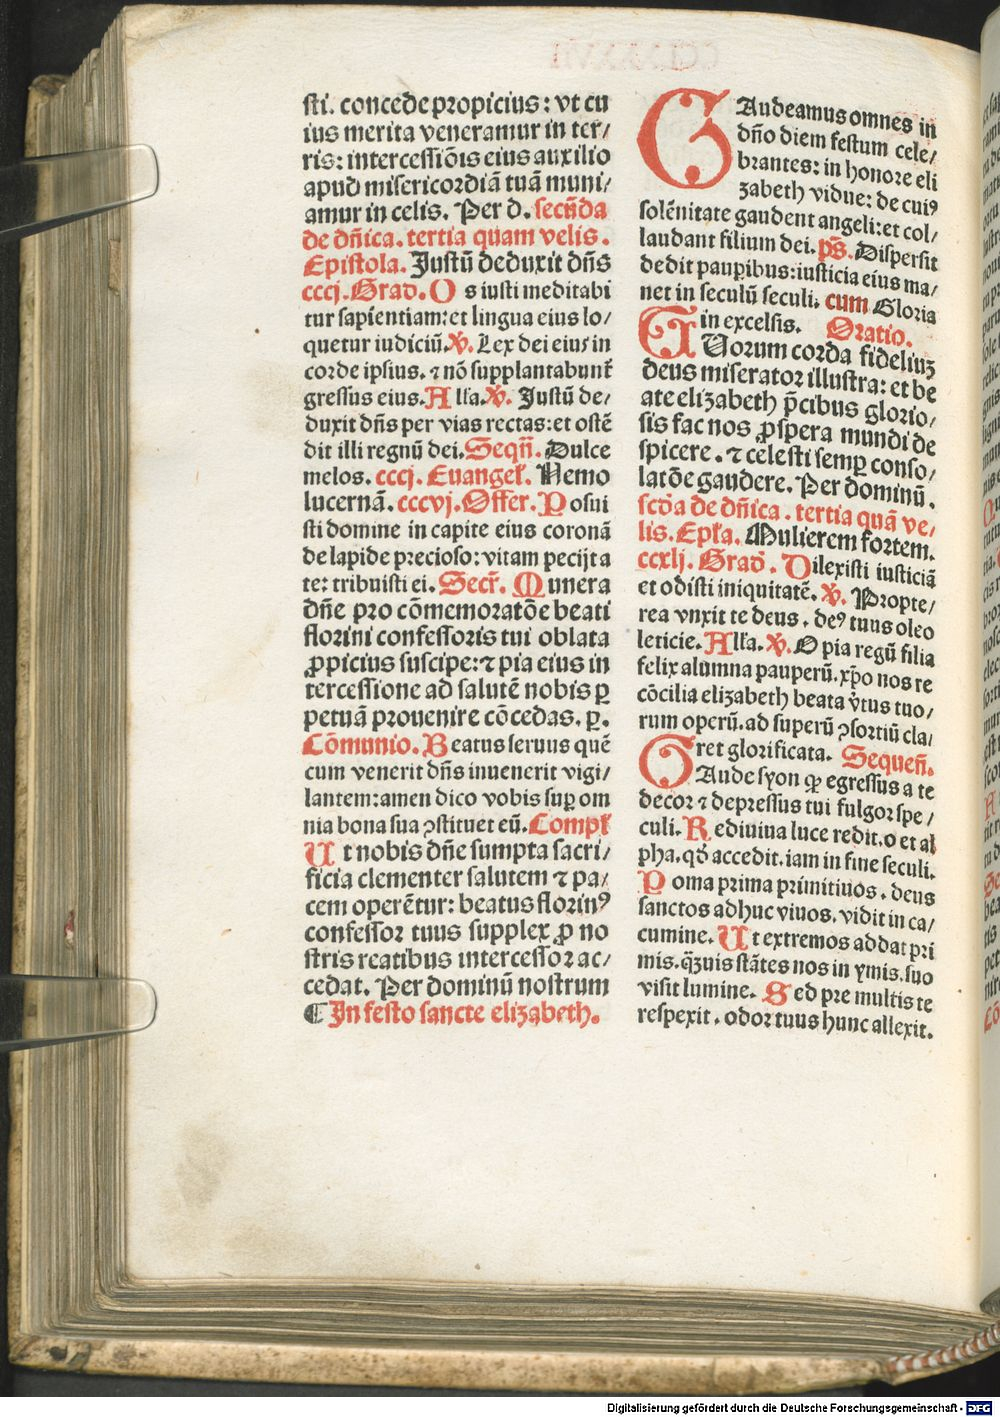 sti. concede propicius: vt cu
ius merita veneramur in ter/
ris: intercessiõis eius auxilio
apud misericordiã tuã muni/
amur in celis. Per d. secũda
de dñica. tertia quam velis.
Epistola. Justũ deduxit dñs
cccj. Grad. Os iusti meditabi
tur sapientiam: et lingua eius lo/
quetur iudiciũ. ℣. Lex dei eius in
corde ipsius. ⁊ nõ supplantabunt̃
gressus eius. Alľa. ℣. Justũ de/
duxit dñs per vias rectas: et ostẽ
dit illi regnũ dei. Seqñ. Dulce
melos. cccj. Euangeľ. Nemo
lucernã. cccvj. Offer. Posui
sti domine in capite eius coronã
de lapide precioso: vitam pecijt a
te: tribuisti ei. Secr̃. Munera
dñe pro cõmemoratõe beati
florini confessoris tui oblata
ꝓpicius suscipe: ⁊ pia eius in
tercessione ad salutẽ nobis ꝑ
petuã prouenire cõcedas. ꝑ.
Cõmunio. Beatus seruus quẽ
cum venerit dñs inuenerit vigi/
lantem: amen dico vobis suꝑ om
nia bona sua ꝯstituet eũ. Compľ
Ut nobis dñe sumpta sacri/
ficia clementer salutem ⁊ pa/
cem operẽtur: beatus florinꝰ
confessor tuus supplex ꝓ no
stris reatibus intercessor ac/
cedat. Per dominũ nostrum
¶ In festo sancte elizabeth.
GAudeamus omnes in
dño diem festum cele/
brantes: in honore eli
zabeth vidue: de cuiꝰ
solẽnitate gaudent angeli: et col/
laudant filium dei. p̃s. Dispersit
dedit pauꝑibus: iusticia eius ma/
net in seculũ seculi. cum Gloria
in excelsis. Oratio.
TUorum corda fideliuꝫ
deus miserator illustra: et be
ate elizabeth p̃cibus glorio/
sis fac nos ꝓspera mundi de
spicere. ⁊ celesti semꝑ conso/
latõe gaudere. Per dominũ.
scďa de dñica. tertia quã ve/
lis. Epľa. Mulierem fortem.
ccxlj. Grad. Dilexisti iusticiã
et odisti iniquitatẽ. ℣. Propte/
rea vnxit te deus. deꝰ tuus oleo
leticie. Alľa. ℣. O pia regũ filia
felix alumna pauperũ. xp̃o nos re
cõcilia elizabeth beata v̾tus tuo/
rum operũ. ad superũ ꝯsortiũ cla/
ret glorificata. Sequeñ.
GAude syon ꝙ egressus a te
decor ⁊ depressus tui fulgor spe/
culi. Rediuiua luce redit. o et al
pha. qď accedit. iam in fine seculi.
Poma prima primitiuos. deus
sanctos adhuc viuos. vidit in ca/
cumine. Ut extremos addat pri
mis. qꝫuis stãtes nos in ymis. suo
visit lumine. Sed pre multis te
respexit. odor tuus hunc allexit.
Digitalisierung gefördert durch die Deutsche Forschungsgemeinschaft - DFG